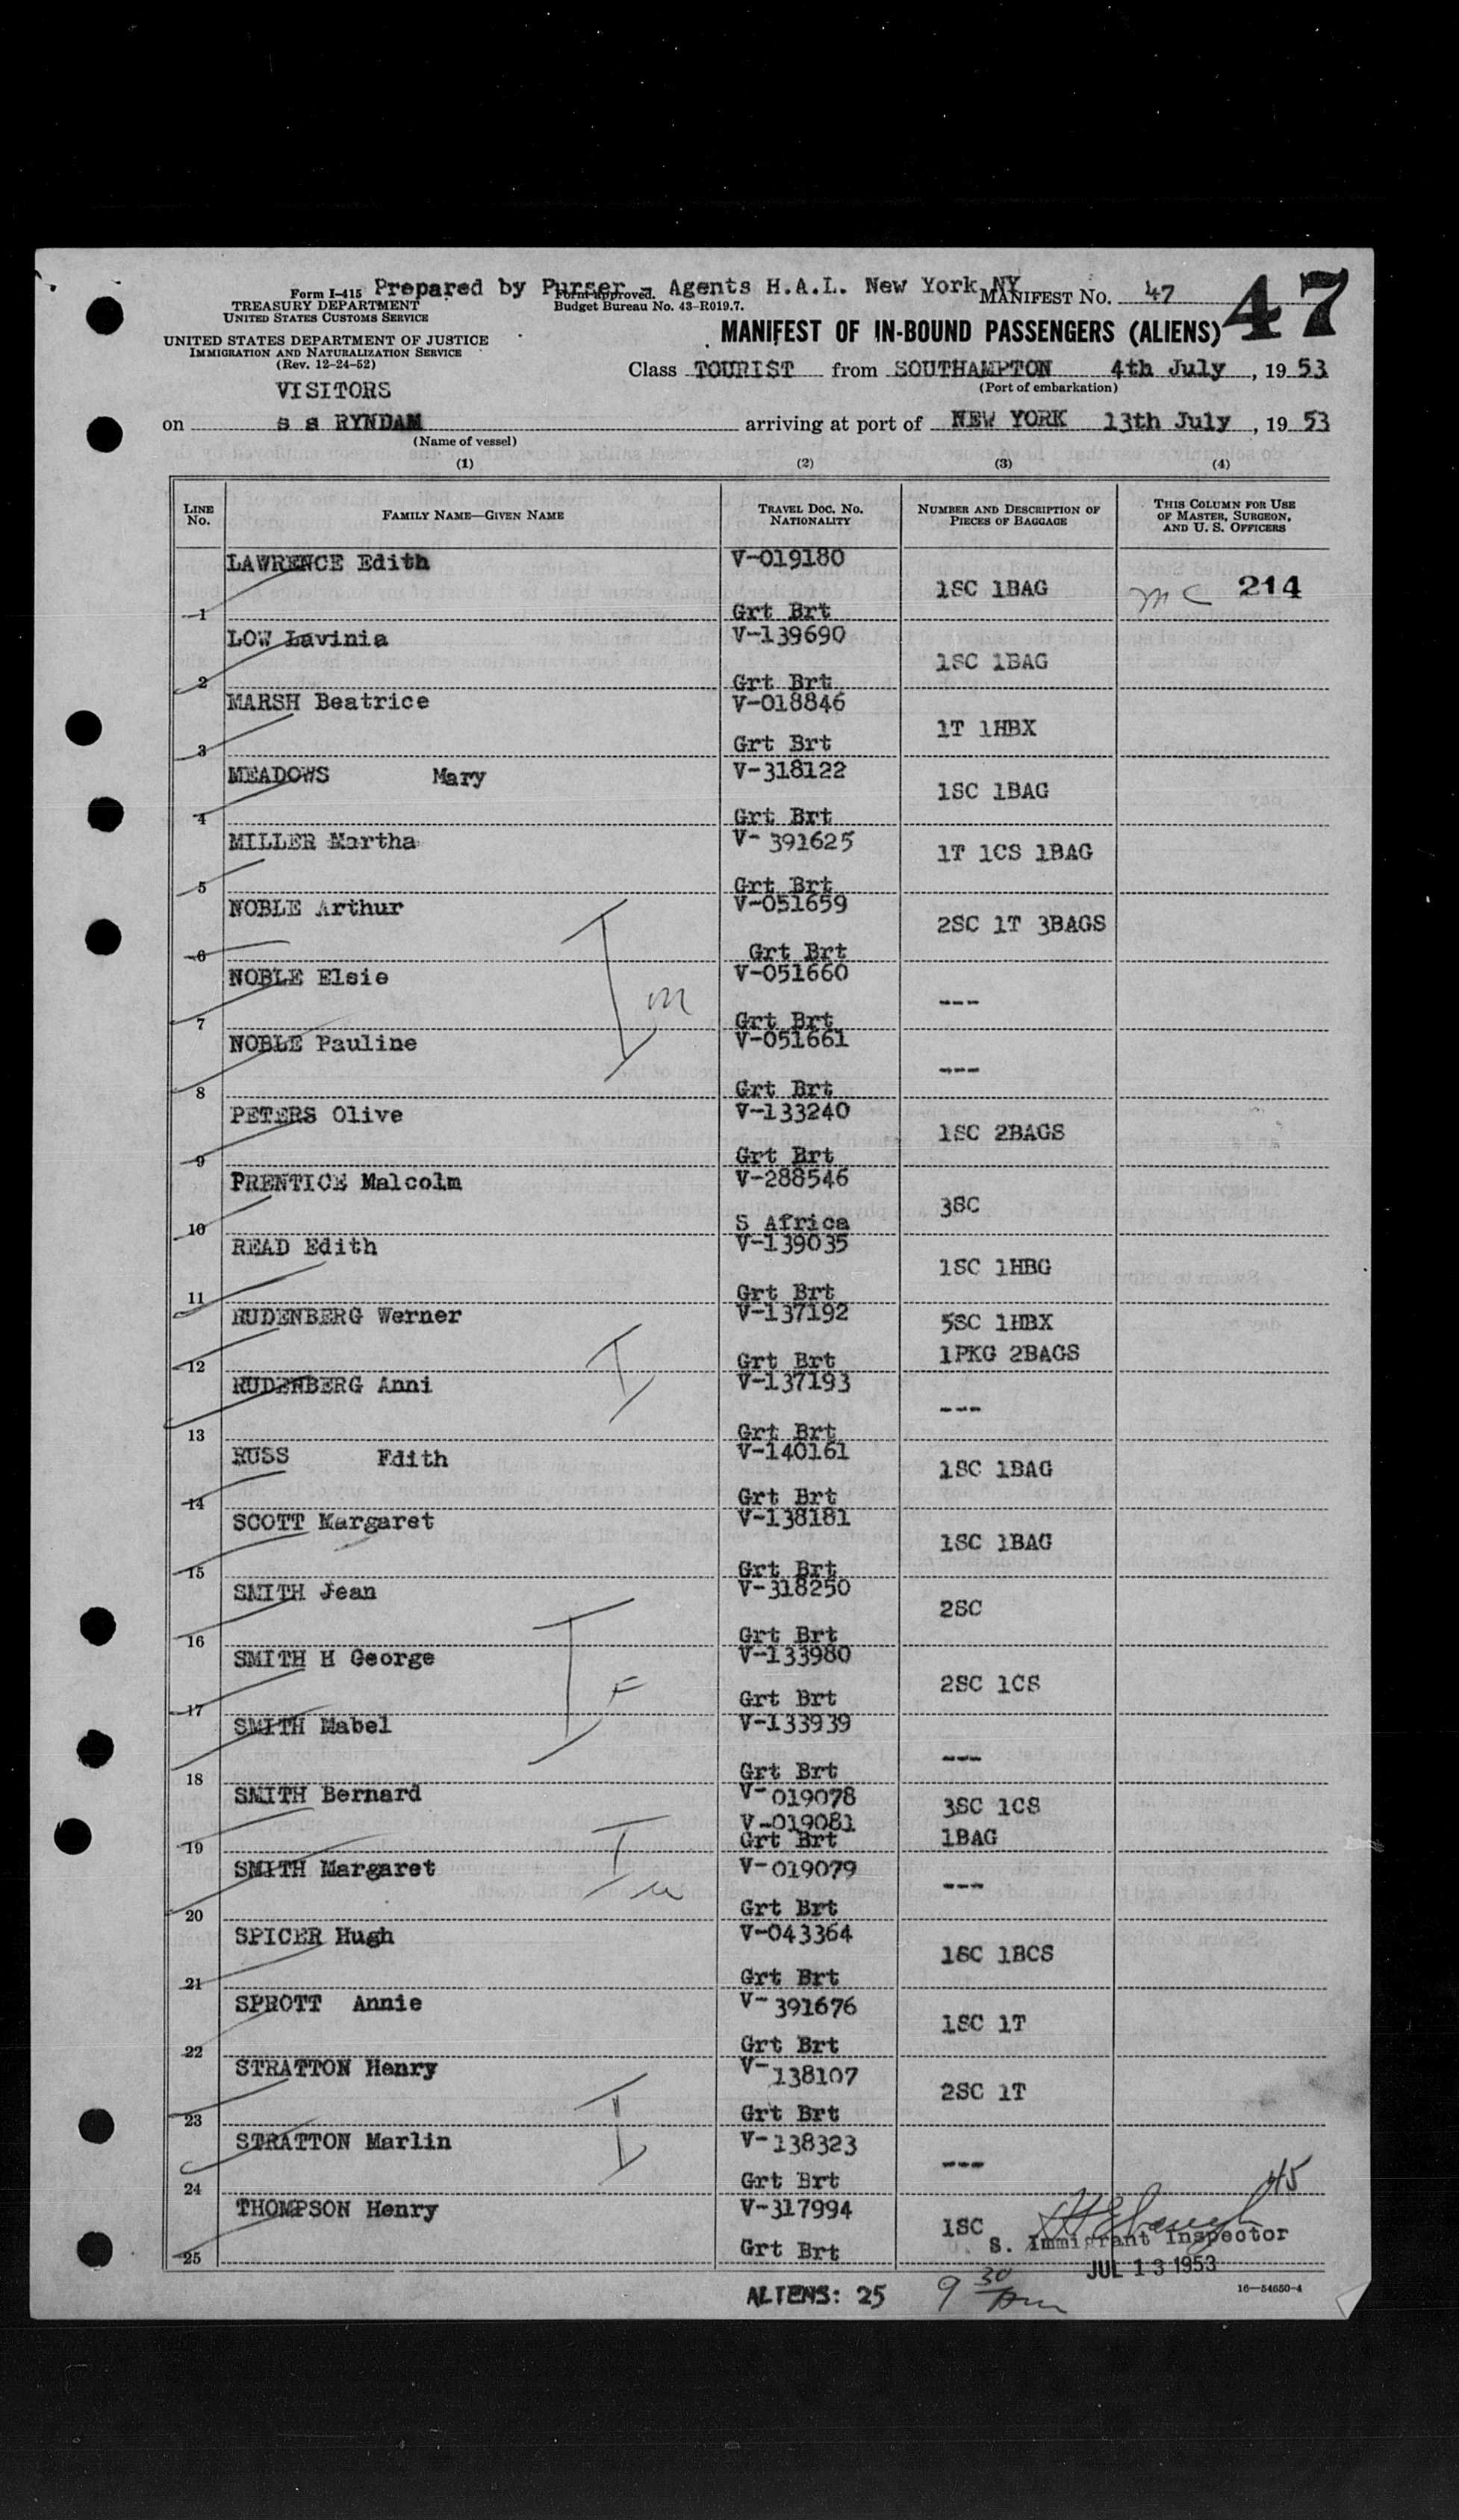 Prepared by Purser - Agents H.A.L. New York NY
Form I-415
TREASURY DEPARTMENT
UNITED STATES CUSTOMS SERVICE
Form approved.
Budget Bureau No. 43-R019.7.
MANIFEST NO. 47
47
UNITED STATES DEPARTMENT OF JUSTICE
IMMIGRATION AND NATURALIZATION SERVICE
(Rev. 12-24-52)
MANIFEST OF IN-BOUND PASSENGERS (ALIENS)
VISITORS
Class TOURIST from SOUTHAMPTON 4th July, 1953
(Port of embarkation)
on s s RYNDAM arriving at port of NEW YORK 13th July, 1953
(Name of vessel)
(1) (2) (3) (4)
LINE No. FAMILY NAME—GIVEN NAME TRAVEL DOC. NO. NATIONALITY NUMBER AND DESCRIPTION OF PIECES OF BAGGAGE THIS COLUMN FOR USE OF MASTER, SURGEON, AND U. S. OFFICERS
LAWRENCE Edith V-019180
1SC 1BAG mc 214
1 Grt Brt
LOW Lavinia V-139690
1SC 1BAG
2 Grt Brt
MARSH Beatrice V-018846
1T 1HBX
3 Grt Brt
MEADOWS Mary V-318122
1SC 1BAG
4 Grt Brt
MILLER Martha V- 391625
1T 1CS 1BAG
5 Grt Brt
NOBLE Arthur V-051659
2SC 1T 3BAGS
6 Grt Brt
NOBLE Elsie V-051660
---
7 Grt Brt
NOBLE Pauline V-051661
---
8 Grt Brt
PETERS Olive V-133240
1SC 2BAGS
9 Grt Brt
PRENTICE Malcolm V-288546
3SC
10 S Africa
READ Edith V-139035
1SC 1HBG
11 Grt Brt
RUDENBERG Werner V-137192
5SC 1HBX
12 Grt Brt 1PKG 2BAGS
RUDENBERG Anni V-137193
---
13 Grt Brt
RUSS Edith V-140161
1SC 1BAG
14 Grt Brt
SCOTT Margaret V-138181
1SC 1BAG
15 Grt Brt
SMITH Jean V-318250
2SC
16 Grt Brt
SMITH H George V-133980
2SC 1CS
17 Grt Brt
SMITH Mabel V-133939
---
18 Grt Brt
SMITH Bernard V-019078
3SC 1CS
V-019081
19 Grt Brt 1BAG
SMITH Margaret V-019079
---
20 Grt Brt
SPICER Hugh V-043364
1SC 1BCS
21 Grt Brt
SPROTT Annie V-391676
1SC 1T
22 Grt Brt
STRATTON Henry V-138107
2SC 1T
23 Grt Brt
STRATTON Marlin V-138323
---
24 Grt Brt
45
THOMPSON Henry V-317994
1SC
S. Immigrant Inspector
25 Grt Brt
JUL 13 1953
ALIENS: 25 9 30
16—54650-4